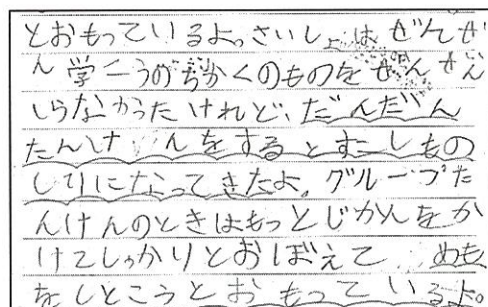 とおもっているよ。さいしょはぜんぜ
ん学こうのちかくのものをぜんぜん
しらなかったけれど、だんだん
たんけんをするとすこしもの
しりになってきたよ。グループた
んけんのときはもっとじかんをか
けてしっかりとおぼえて めも
をしとこうとおもっているよ。